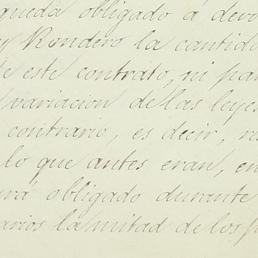 queda obligado á devo
y Rondero la cantida
de este contrato, ni par
variacion de las leyes
contrario, es decir, re
lo que antes eran, en
rá obligado durante
arios la mitad de los p